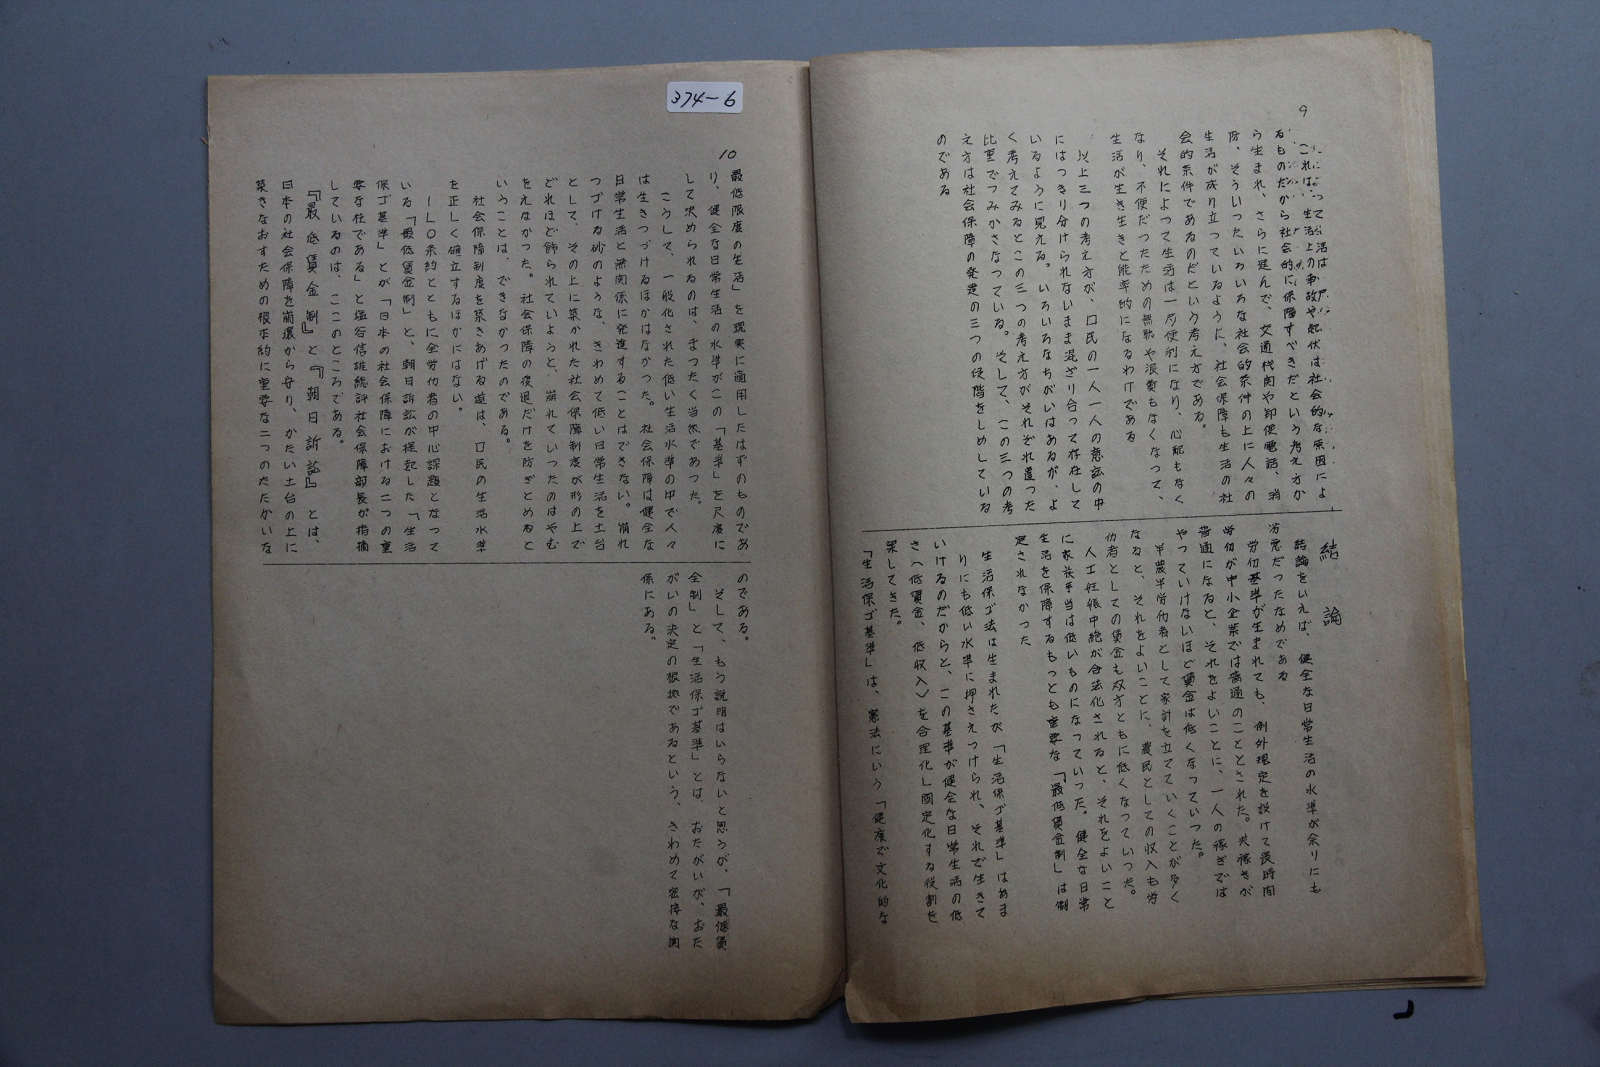 9
これは、生活上の事故や起伏は社会的な原因によ
るものだから社会的に保障すべきだという考え方か
ら生まれ、さらに進んで、交通機関や郵便電話、消
防、そういったいろいろな社会的条件の上に人々の
生活が成り立っているように、社会保障も生活の社
会的条件であるのだという考え方である。
それによって生活は一層便利になり、心配もなく
なり、不便だったための無駄や浪費もなくなって、
生活が生き生きと能率的になるわけである
以上三つの考え方が、口民の一人一人の意識の中
にはっきり分けられないまま混ざり合って存在して
いるように見える。いろいろなちがいはあるが、よ
く考えてみるとこの三つの考え方がそれぞれ違った
比重でつみかさなっている。そして、この三つの考
え方は社会保障の発達の三つの段階をしめしている
のである
結論
結論をいえば、健全な日常生活の水準が余りにも
劣悪だったためである
労仂基準が生まれても、例外規定を設けて長時間
労仂が中小企業では普通のこととされた。共稼ぎが
普通になると、それをよいことに、一人の稼ぎでは
やっていけないほど賃金は低くなっていった。
半農半労仂者として家計を立てていくことが多く
なると、それをよいことに、農民としての収入も労
仂者としての賃金も双方ともに低くなっていった。
人工妊娠中絶が合法化されると、それをよいこと
に家族手当は低いものになっていった。健全な日常
生活を保障するもっとも重要な「最低賃金制」は制
定されなかった
生活保ゴ法は生まれたが「生活保ゴ基準」はあま
りにも低い水準に押さえつけられ、それで生きて
いけるのだからと、この基準が健全な日常生活の低
さ（低賃金、低収入）を合理化し固定化する役割を
果してきた。
「生活保ゴ基準」は、憲法にいう「健康で文化的な
374-6
10
最低限度の生活」を現実に適用したはずのものであ
り、健全な日常生活の水準がこの「基準」を尺度に
して決められるのは、まったく当然であった。
こうして、一般化された低い生活水準の中で人々
は生きつづけるほかはなかった。社会保障は健全な
日常生活と無関係に発達することはできない。崩れ
つづける砂のような、きわめて低い日常生活を土台
として、その上に築かれた社会保障制度が形の上で
どれほど飾られていようと、崩れていったのはやむ
をえなかった。社会保障の後退だけを防ぎとめると
いうことは、できなかったのである。
社会保障制度を築きあげる道は、口民の生活水準
を正しく確立するほかにはない。
ILO条約とともに全労仂者の中心課題となって
いる「最低賃金制」と、朝日訴訟が提起した「生活
保ゴ基準」とが「日本の社会保障における二つの重
要な柱である」と塩谷信雄総評社会保障部長が指摘
しているのは、ここのところである。
『最低賃金制』と『朝日訴訟』とは、
日本の社会保障を崩壊から守り、かたい土台の上に
築きなおすための根本的に重要な二つのたたかいな
のである。
そして、もう説明はいらないと思うが、「最低賃
金制」と「生活保ゴ基準」とは、おたがいが、おた
がいの決定の根拠であるという、きわめて密接な関
係にある。